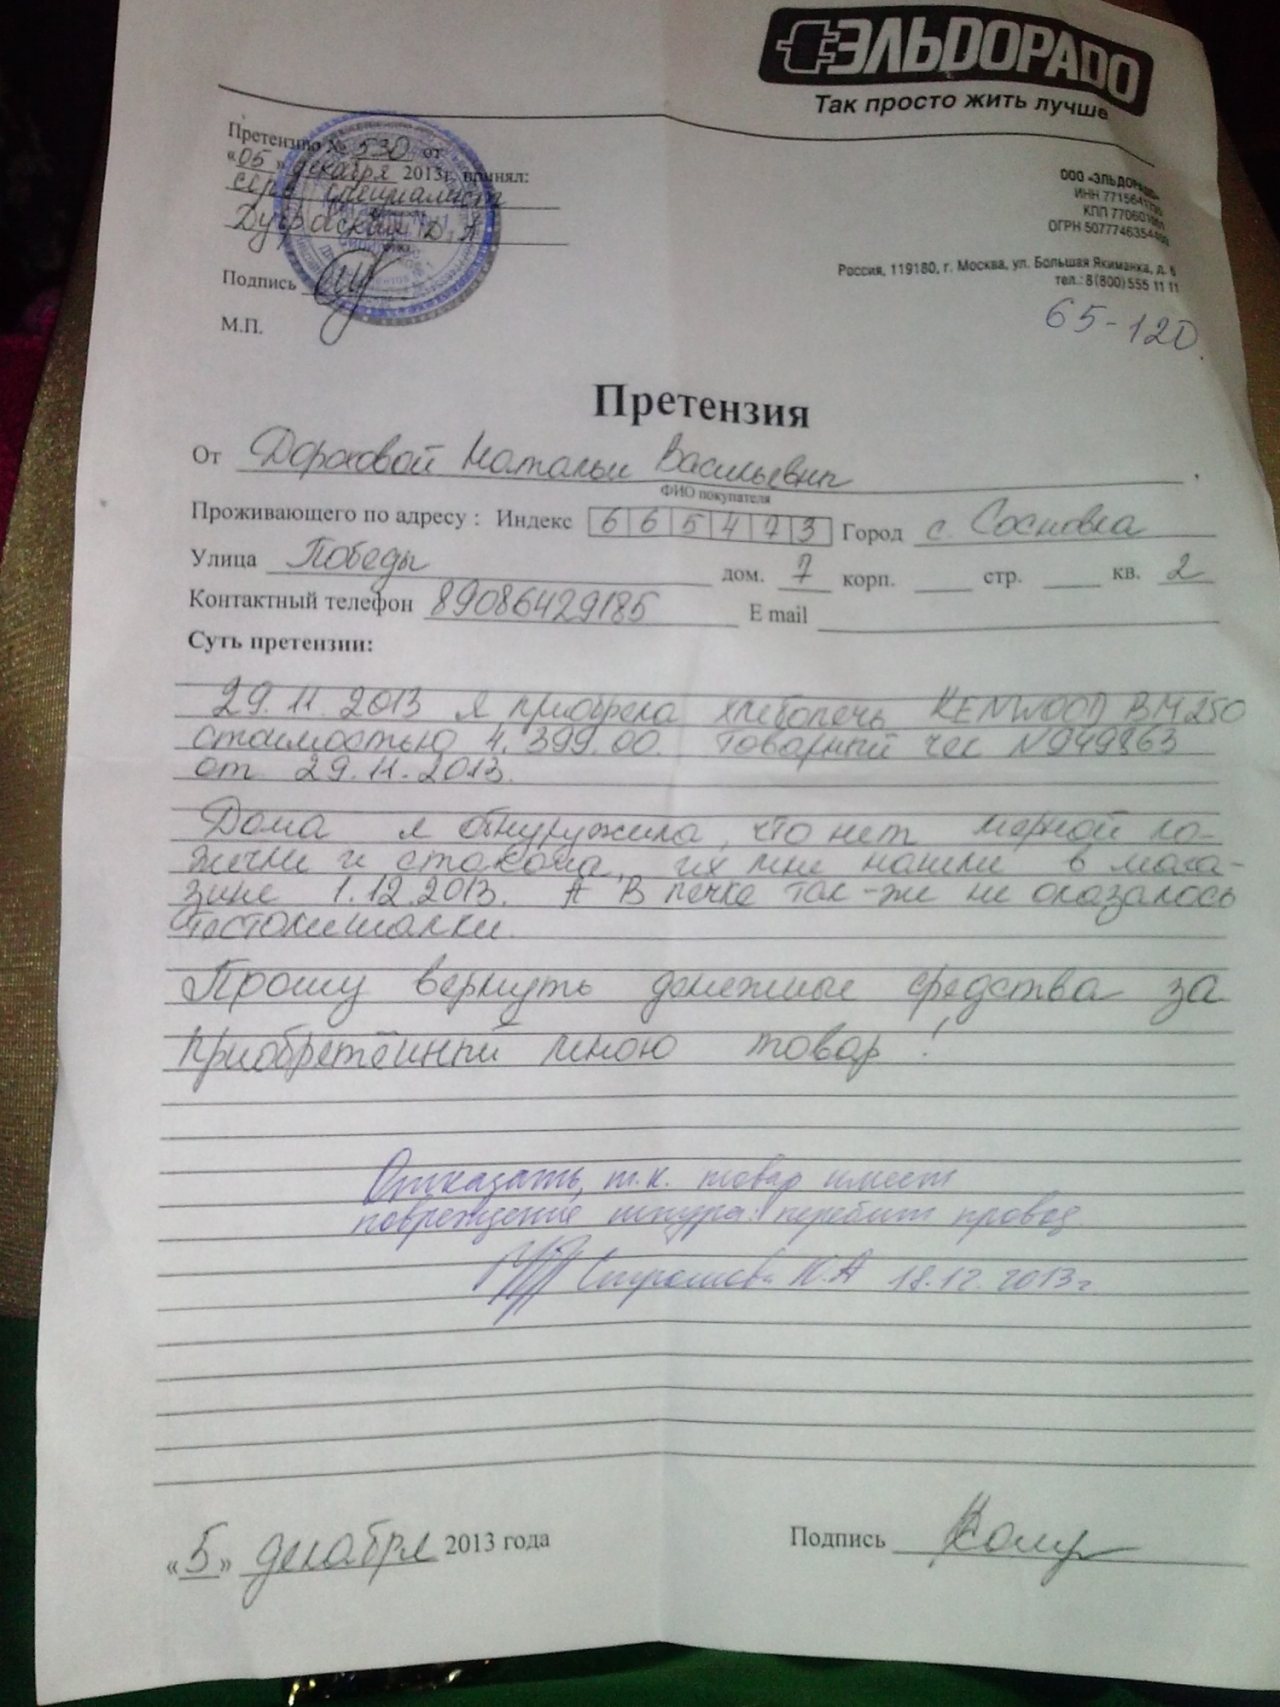 ЭЛЬДОРАДО
Так просто жить лучше
Претензию № 530 от
«05» декабря 2013г. принял:
серв. специалист
Д.А
Подпись
М.П.
ООО «ЭЛЬДОРАДО»
ИНН
КПП
ОГРН
Россия, 119180, г. Москва, ул. Большая Якиманка, д. 6
тел.: 8(800) 555 11 11
65-120.
Претензия
От Дороховой Натальи Васильевны
ФИО покупателя
Проживающего по адресу : Индекс 665473 Город с. Сосновка
Улица Победы дом. 7 корп. стр. кв. 2
Контактный телефон 89086429185 E mail
Суть претензии:
29.11.2013 я приобрела хлебопечь KENWOOD BM250
стоимостью 4.399.00. Товарный чес N949863
от 29.11.2013.
Дома я обнуружила, что нет мерной ло-
жечки и стакана, их мне нашли в мага-
зине 1.12.2013. А в печке так-же не оказалось
тестомешалки.
Прошу вернуть денежные средства за
приобретённый мною товар!
Отказать, т.к. товар имеет
повреждение шнура: перебит провод
К.А 18.12.2013г.
«5» декабря 2013 года Подпись